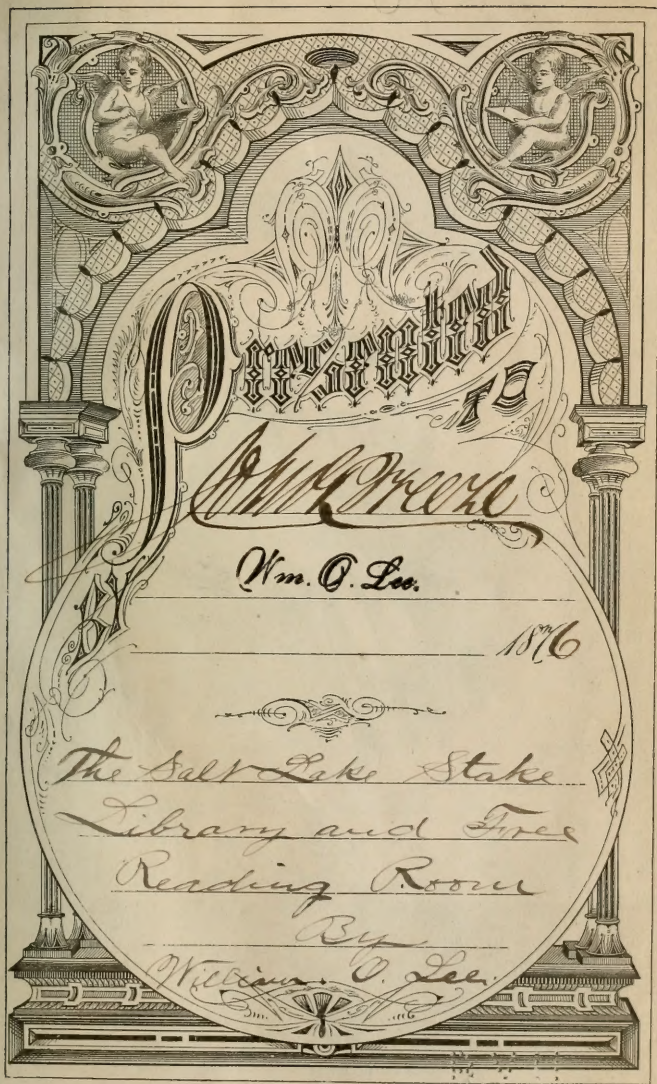 Presented
TO
John C. Greene
Wm. O. Lee.
BY
1876
The Salt Lake Stake
Library and Free
Reading Room
By
William. O. Lee.